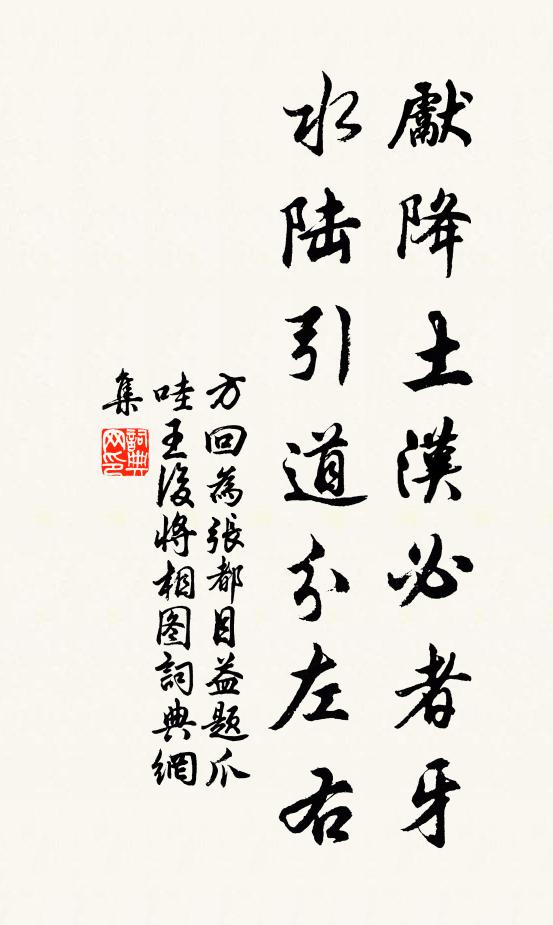 獻降土漢必者牙
水陆引道分左右
方回為張都目益題爪
哇王後將相图詞典網
集
詞典网印